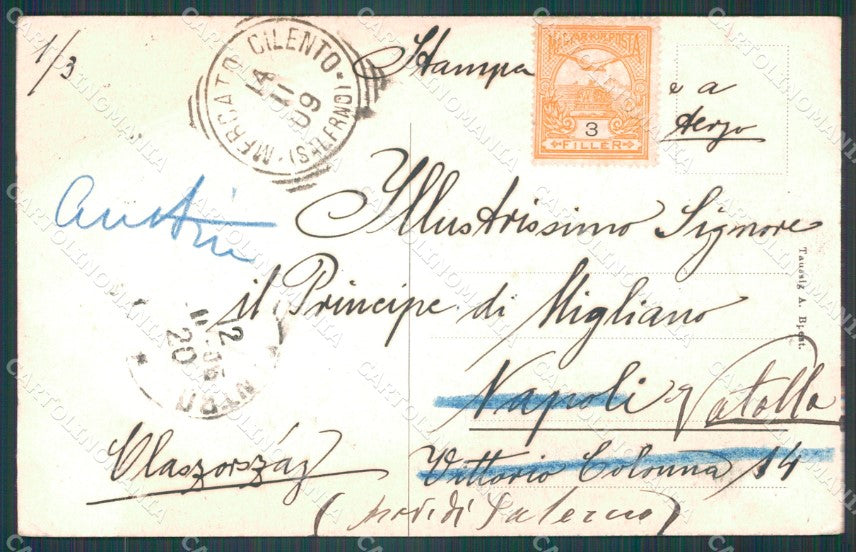 1/3
MERCATO CILENTO (SALERNO)
14 11 09
Stampa
MAGYAR KIR. POSTA
3
FILLER
e a
tergo
Austria
Illustrissimo Signore
il Principe di Migliano
Napoli Vatolla
Vittorio Colonna 14
(Prov. di Salerno)
Olaszország
Taussig A. Bpest.
CARTOLINOMANIA